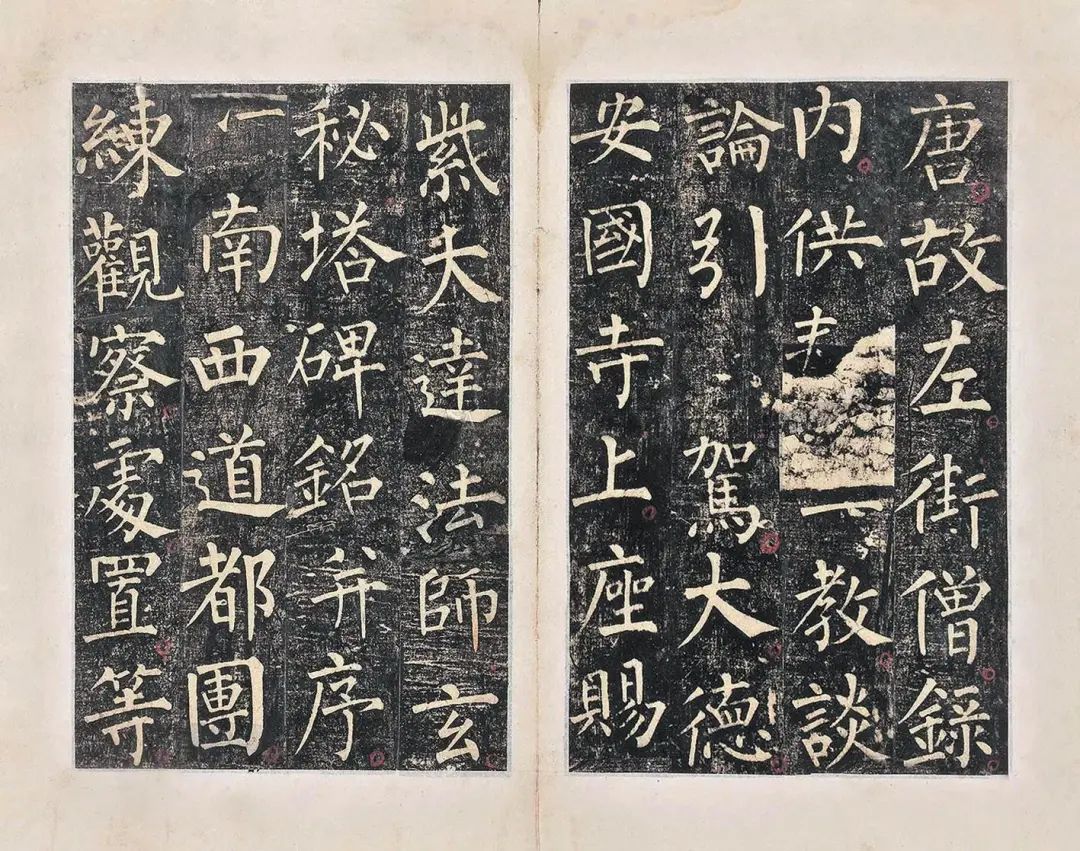 唐故左街僧錄
内供教談
論引駕大德
安國寺上座賜
紫夫達法師玄
秘塔碑銘并序
南西道都團
練觀察處置等